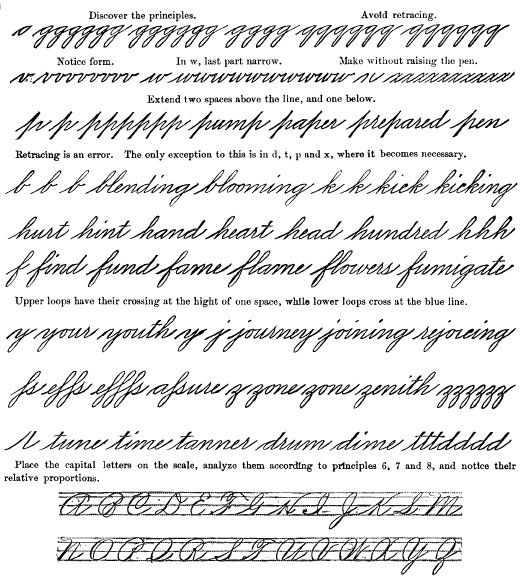 Discover the principles. Avoid retracing.
Notice form. In w, last part narrow. Make without raising the pen.
v vvvvvvvv w wwwwwwwwwww
Extend two spaces above the line, and one below.
p p pppppp pump paper prepared pen
Retracing is an error. The only exception to this is in d, t, p and x, where it becomes necessary.
b b b blending blooming k k kick kicking
hurt hint hand heart head hundred hhh
f find fund fame flame flowers fumigate
Upper loops have their crossing at the hight of one space, while lower loops cross at the blue line.
y your youth y j journey joining rejoicing
ſs eſſs eſſſs aſsure z zone zone zenith zzzzzz
t tune time tanner drum dime tttdddd
Place the capital letters on the scale, analyze them according to principles 6, 7 and 8, and notice their
relative proportions.
A B C D E F G H I J K L M
N O P Q R S T U V W X Y Z